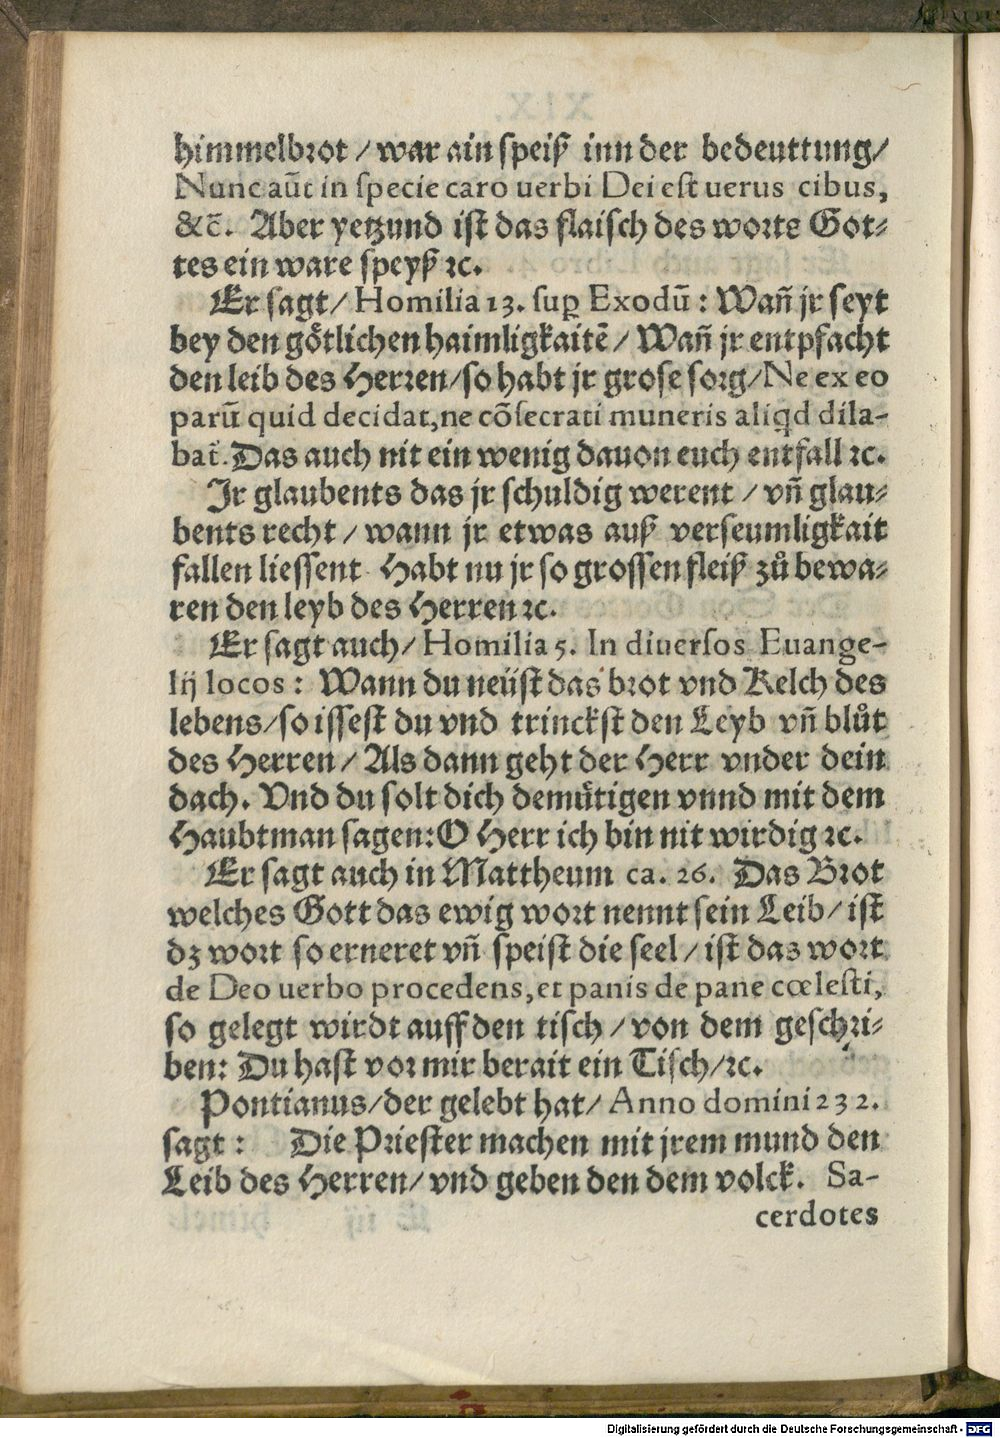 himmelbrot / war ain speiß inn der bedeuttung/
Nunc aūt in specie caro uerbi Dei est uerus cibus,
&c̄. Aber yetzund ist das flaisch des worts Got⸗
tes ein ware speyß ꝛc.
Er sagt/ Homilia 13. suꝑ Exodū : Wañ jr seyt
bey den gőtlichen haimligkaitē / Wañ jr entpfacht
den leib des Herren/so habt jr grose sorg/Ne ex eo
parū quid decidat, ne cōsecrati muneris aliqd dila-
bat̄. Das auch nit ein wenig dauon euch entfall ꝛc.
Jr glaubents das jr schuldig werent / vñ glau⸗
bents recht / wann jr etwas auß verseumligkait
fallen liessent Habt nu jr so grossen fleiß zů bewa⸗
ren den leyb des Herren ꝛc.
Er sagt auch/ Homilia 5. In diuersos Euange-
lij locos : Wann du neüst das brot vnd Kelch des
lebens/so issest du vnd trinckst den Leyb vñ blůt
des Herren / Als dann geht der Herr vnder dein
dach. Vnd du solt dich demütigen vnnd mit dem
Haubtman sagen: O Herr ich bin nit wirdig ꝛc.
Er sagt auch in Mattheum ca. 26. Das Brot
welches Gott das ewig wort nennt sein Leib/ ist
dz wort so erneret vñ speist die seel / ist das wort
de Deo uerbo procedens, et panis de pane cœlesti,
so gelegt wirdt auff den tisch / von dem geschri⸗
ben: Du hast vor mir berait ein Tisch/ꝛc.
Pontianus/der gelebt hat/ Anno domini 232.
sagt : Die Priester machen mit jrem mund den
Leib des Herren/ vnd geben den dem volck. Sa-
cerdotes
Digitalisierung gefördert durch die Deutsche Forschungsgemeinschaft - DFG